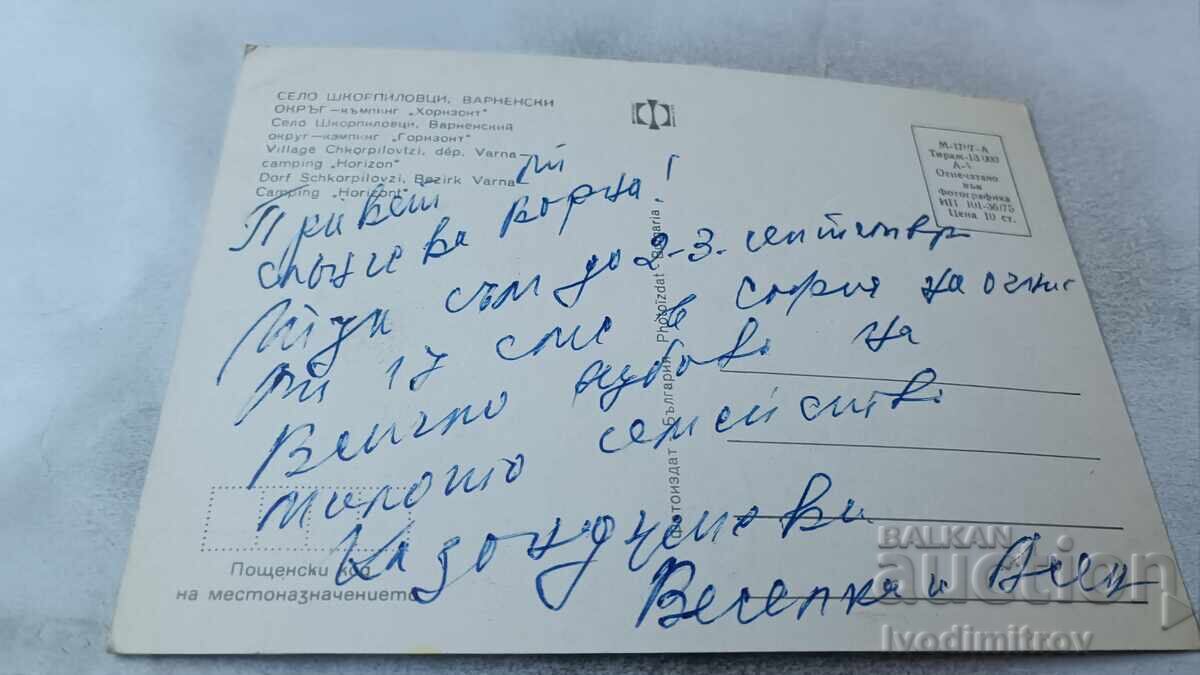 СЕЛО ШКОРПИЛОВЦИ, ВАРНЕНСКИ
ОКРЪГ — къмпинг „Хоризонт“
Село Шкорпиловци, Варненский
округ — кэмпинг „Горизонт“
Village Chkorpilovtzi, dép. Varna —
camping „Horizon“
Dorf Schkorpilovzi, Bezirk Varna —
Camping „Horizont“
М-1207-А
Тираж-18 000
А-
Отпечатано
във
Фотографика
ИП 101-36/75
Цена 10 ст.
Привет
слънчева Варна!
съм до 2-3. септември
17 сме в София на
Всичко хубаво на
милото семейство
Казанджиеви
Веселка и
Фотоиздат - България Photoizdat - Bulgaria
Пощенски код
на местоназначението
BALKAN
auction
Ivodimitrov